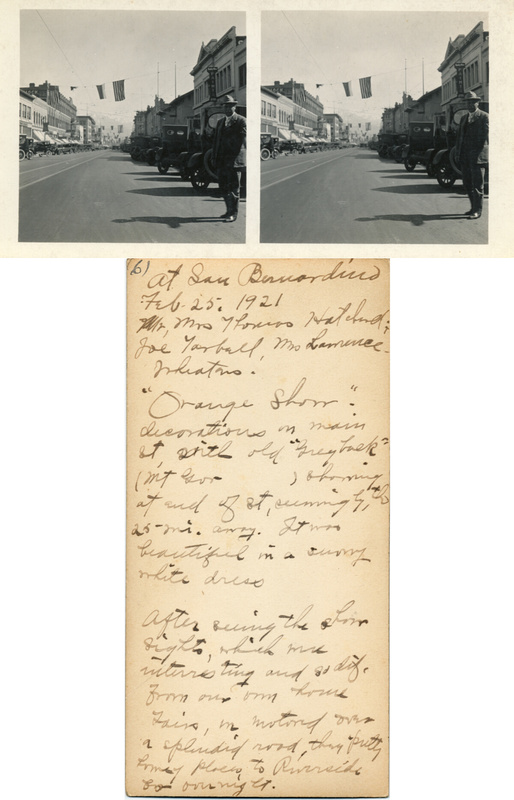 (6)
At San Bernardino
Feb. 25, 1921
Mr, Mrs Thomas
Joe Tarbell, Mrs Lawrence
Wheatons.
"Orange Show".
decorations on main
st with old "Greyback"
(Mt Gor ) showing
at end of st, seemingly, tho
25 mi. away. It was
beautiful in a snowy
white dress
After seeing the show
sights, which were
interesting and so dif.
from our own home
Fairs, we motored over
a splendid road, thru pretty
homey places to Riverside
Co overnight.